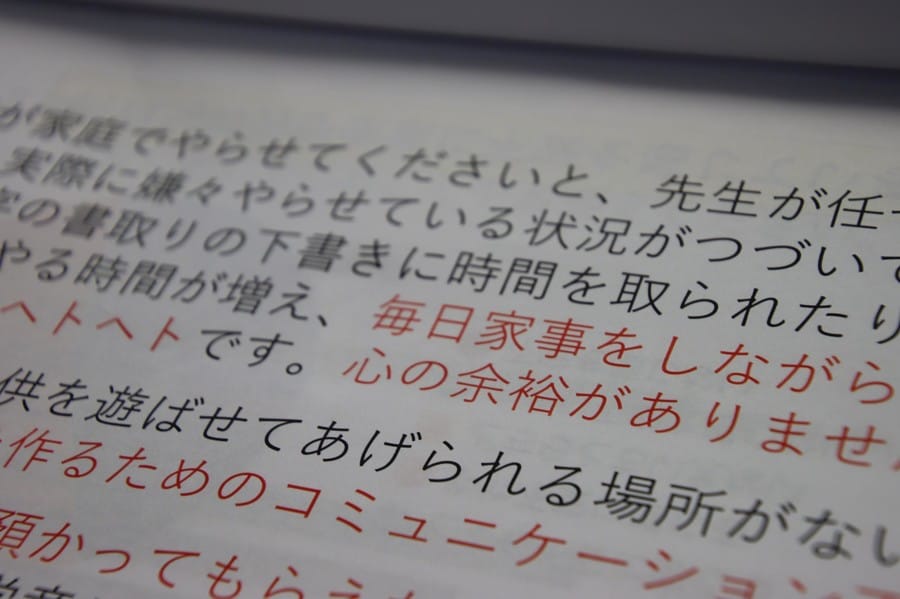 が家庭でやらせてくださいと、先生が任
実際に嫌々やらせている状況がつづいて
の書取りの下書きに時間を取られたり
やる時間が増え、毎日家事をしながら
ヘトヘトです。心の余裕がありません
供を遊ばせてあげられる場所がない
作るためのコミュニケーション
預かってもらえ